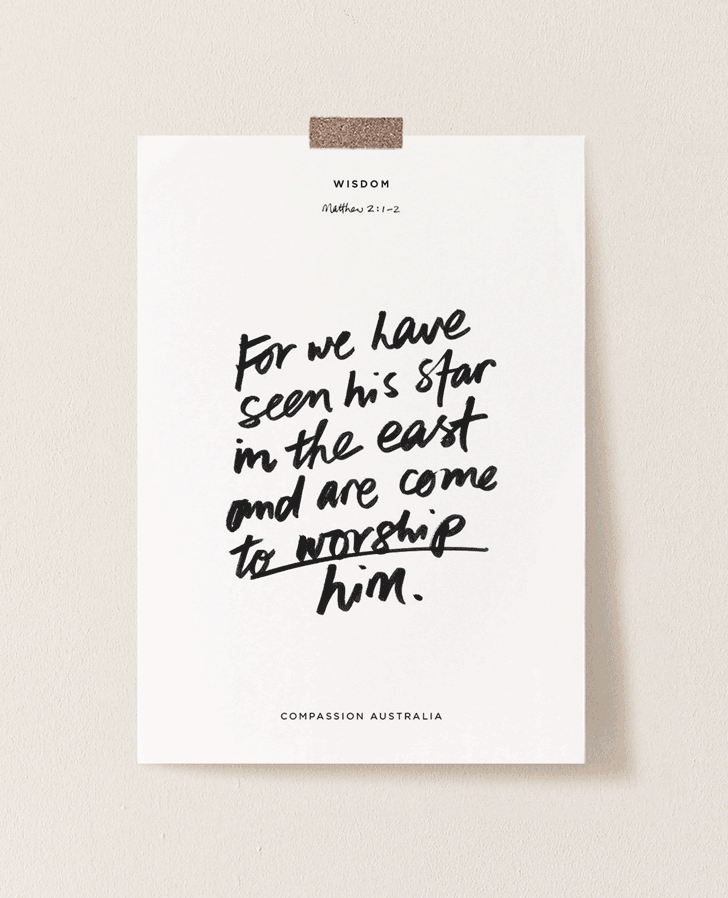 WISDOM
Matthew 2:1-2
For we have
seen his star
in the east
and are come
to worship
him.
COMPASSION AUSTRALIA